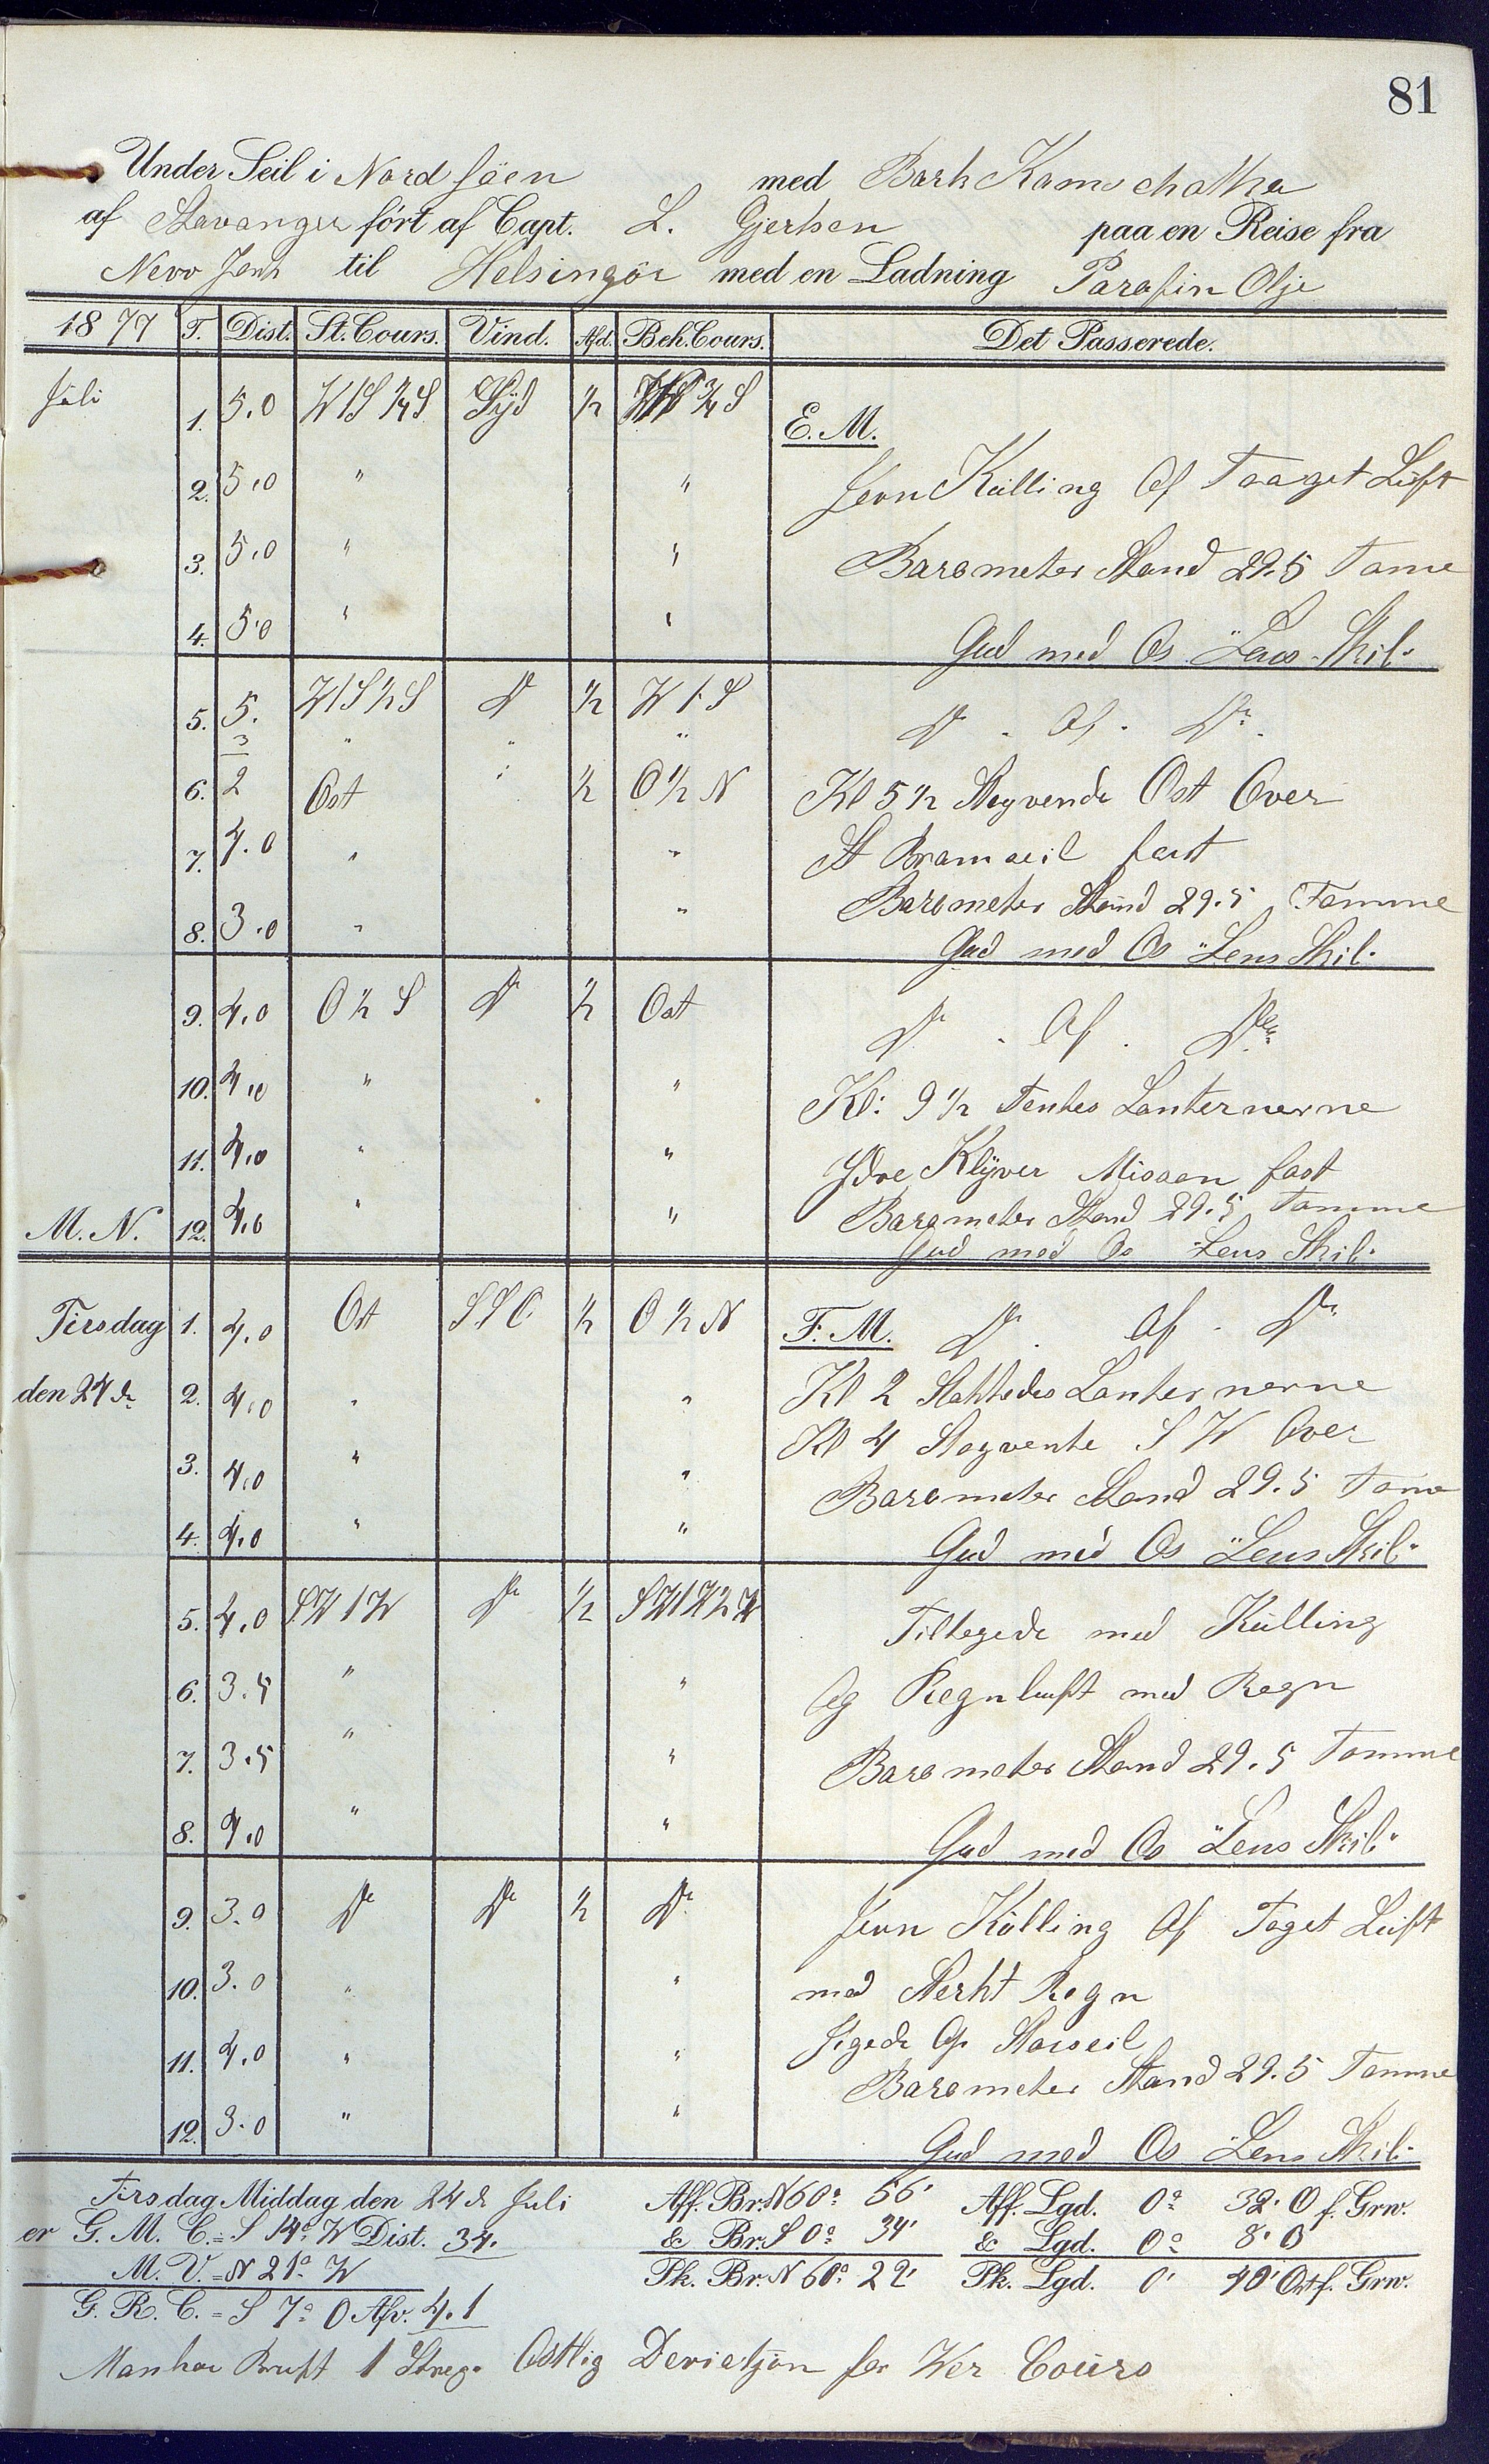 81
Under Seil i Nord Søen med Bark Kamschatka
af Stavanger ført af Capt. L. Gjertsen paa en Reise fra
New Jork til Helsingör med en Ladning Parafin Olje
1877 T. Dist. St. Cours. Vind. Afd. Beh. Cours. Det Passerede.
Juli 1. 5.0 W1S ¾ S Syd ½ W1S ¾ S E. M.
2. 5.0 " " Jevn Kulling Af Taaget Luft
3. 5.0 " " Barometer Stand 29.5 Tome
4. 5.0 " " Gud med Os Lens Skib.
5. 5. W1S ½ S Do ½ W1S Do . Af . Do.
3 " " "
6. 2 Ost " ½ O ½ N Kl 5 ½ Stagvende Ost Over
7. 4.0 " " St Bramseil fast
8. 3.0 " " Barometer Stand 29.5 Tomme
Gud med Os Lens Skib.
9. 4.0 O ½ S Do ½ Ost Do . Af . Do
10. 4.0 " " Kl: 9 ½ Tentes Lanternerne
11. 4.0 " " Ydre Klyver Misaen fast
M. N. 12. 4.0 " " Barometer Stand 29.5 Tomme
Gud med Os Lens Skib.
Tirsdag 1. 4.0 Ost SSO ½ O ½ N F. M. Do . Af . Do
den 24 de 2. 4.0 " " Kl 2 Slokkedes Lanternerne
3. 4.0 " " Kl 4 Stagvente S W Over
Barometer Stand 29.5 Tome
4. 4.0 " " Gud med Os Lens Skib.
5. 4.0 SW1W Do ½ SW1W ½ W Tiltagede med Kulling
6. 3.5 " " Og Regnluft med Regn
7. 3.5 " " Barometer Stand 29.5 Tomme
8. 4.0 " " Gud med Os Lens Skib.
9. 3.0 Do Do ½ Do Jevn Kulling Af Toget Luft
10. 3.0 " " med Sterkt Regn
11. 4.0 " " Stagseil
Barometer Stand 29.5 Tomme
12. 3.0 " " Gud med Os Lens Skib.
Tirsdag Middag den 24 de Juli Aff. Br. N 60° 56' Aff. Lgd. 0° 32' O f. Grw.
er G. M. C. = S 14° W Dist. 34. & Br. S 0° 34' & Lgd. 0° 8' O
M. V. = N 21° W Pk. Br. N 60° 22' Pk. Lgd. 0° 40' Ost f. Grw.
G. R. C. = S 7° O Afv. 4.1
Man har Bruft 1 Streg. Ostlig Deviatjon for Wer Cours